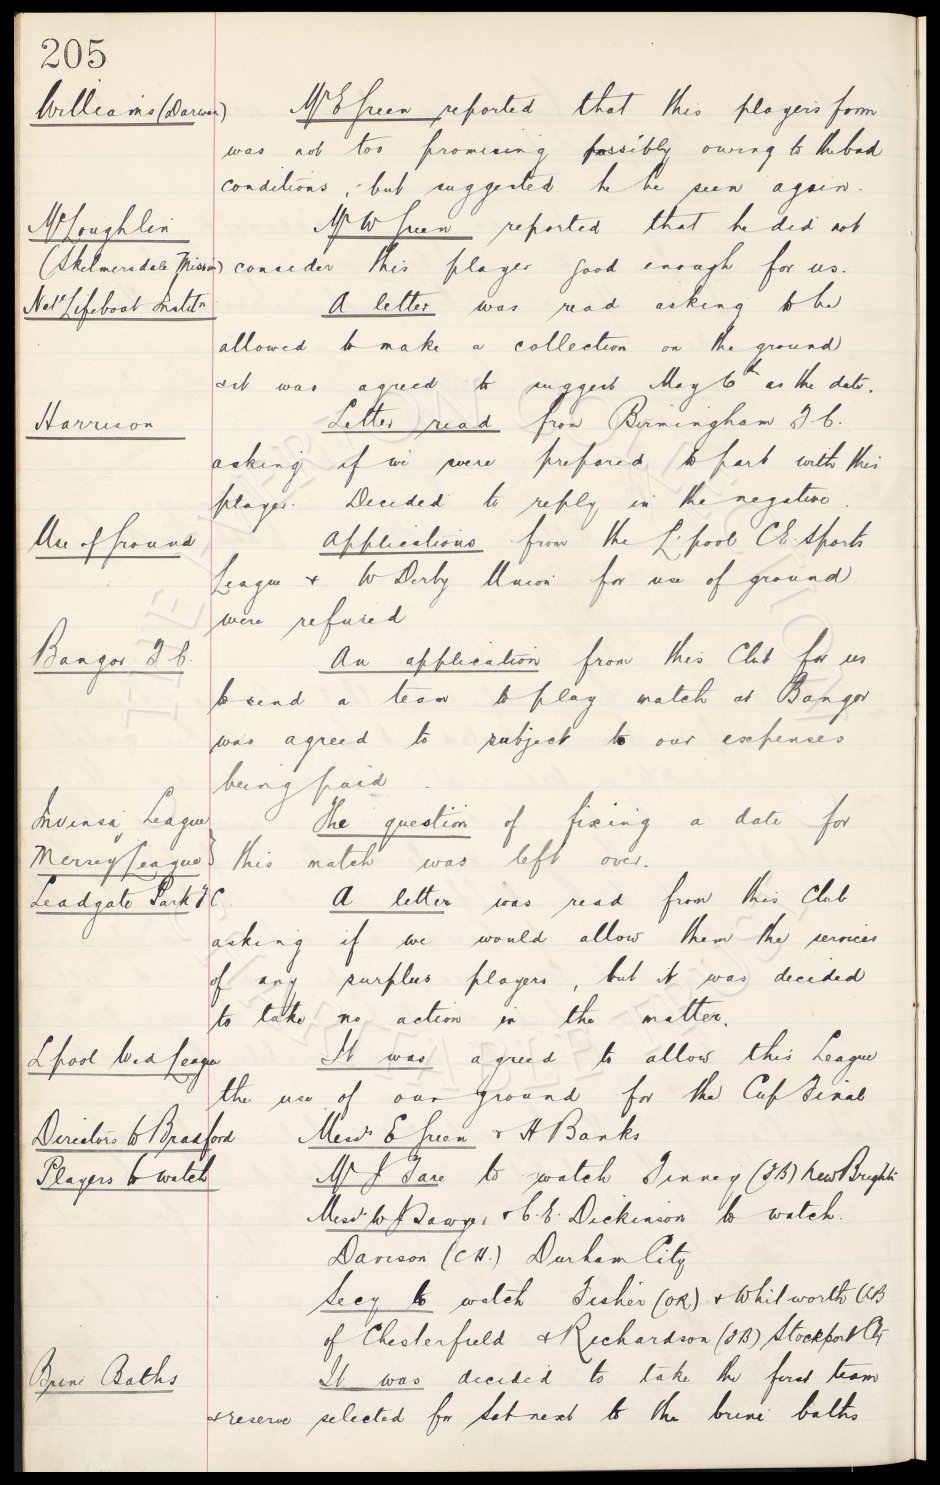 205
Williams (Darwen) Mr E Green reported that this players form
was not too promising possibly owing to the bad
conditions, but suggested he be seen again.
McLoughlin Mr W Green reported that he did not
(Skelmersdale Mission) consider this player good enough for us.
Natl Lifeboat Instítn A letter was read asking to be
allowed to make a collection on the ground
& it was agreed to suggest May 6th as the date.
Harrison Letter read from Birmingham F C.
asking if we were prepared to part with this
player. Decided to reply in the negative.
Use of Ground Applications from the L'pool C.E. Sports
League & W Derby Union for use of ground
were refused
Bangor F C. An application from this Club for us
to send a team to play match at Bangor
was agreed to subject to our expenses
being paid.
Invensa League The question of fixing a date for
Mersey League } this match was left over.
Leadgate Park F C. A letter was read from this Club
asking if we would allow them the services
of any surplus players, but it was decided
to take no action in the matter.
Lpool Wed League It was agreed to allow this League
the use of our ground for the Cup Final
Directors to Bradford Messrs E Green & H Banks
Players to watch Mr J Fare to watch Finney (I B) New Brightn
Messrs W J Sawyer & C. E. Dickinson to watch.
Davison (C H.) Durham City
Secy to watch Fisher (OR) & Whitworth (C B
of Chesterfield & Richardson (I B) Stockport Cty
Brine Baths It was decided to take the first team
& reserve selected for Sat next to the brine baths